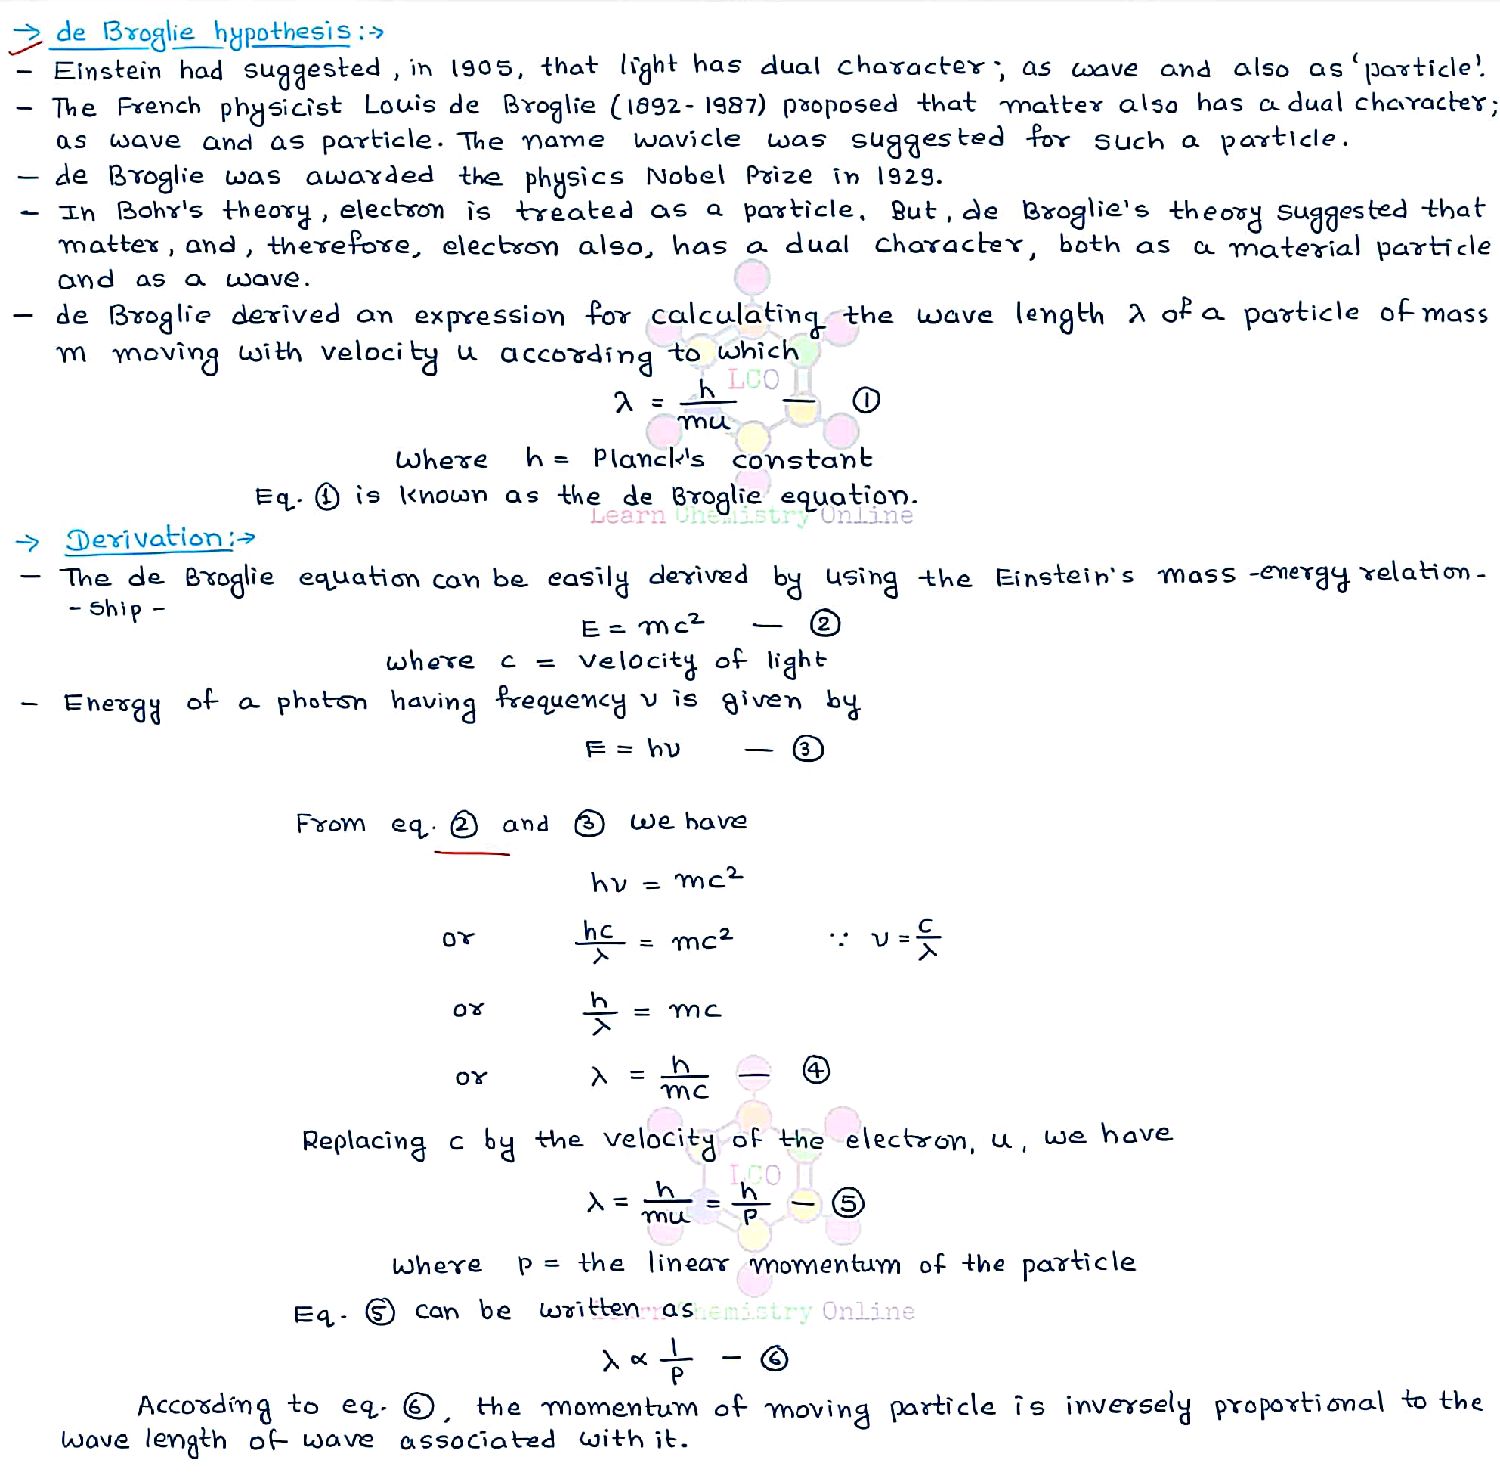 → de Broglie hypothesis :→
– Einstein had suggested, in 1905, that light has dual character; as wave and also as 'particle'.
– The French physicist Louis de Broglie (1892-1987) proposed that matter also has a dual character;
as wave and as particle. The name wavicle was suggested for such a particle.
– de Broglie was awarded the physics Nobel Prize in 1929.
– In Bohr's theory, electron is treated as a particle. But, de Broglie's theory suggested that
matter, and, therefore, electron also, has a dual character, both as a material particle
and as a wave.
– de Broglie derived an expression for calculating the wave length λ of a particle of mass
m moving with velocity u according to which
LCO
λ = h/mu — ①
where h = Planck's constant
Eq. ① is known as the de Broglie equation.
Learn Chemistry Online
→ Derivation :→
– The de Broglie equation can be easily derived by using the Einstein's mass-energy relation-
-ship -
E = mc² — ②
where c = velocity of light
– Energy of a photon having frequency ν is given by
E = hν — ③
From eq. ② and ③ we have
hν = mc²
or hc/λ = mc² ∵ ν = c/λ
or h/λ = mc
or λ = h/mc — ④
Replacing c by the velocity of the electron, u, we have
LCO
λ = h/mu = h/p — ⑤
where p = the linear momentum of the particle
Eq. ⑤ can be written as
Learn Chemistry Online
λ ∝ 1/p – ⑥
According to eq. ⑥, the momentum of moving particle is inversely proportional to the
wave length of wave associated with it.